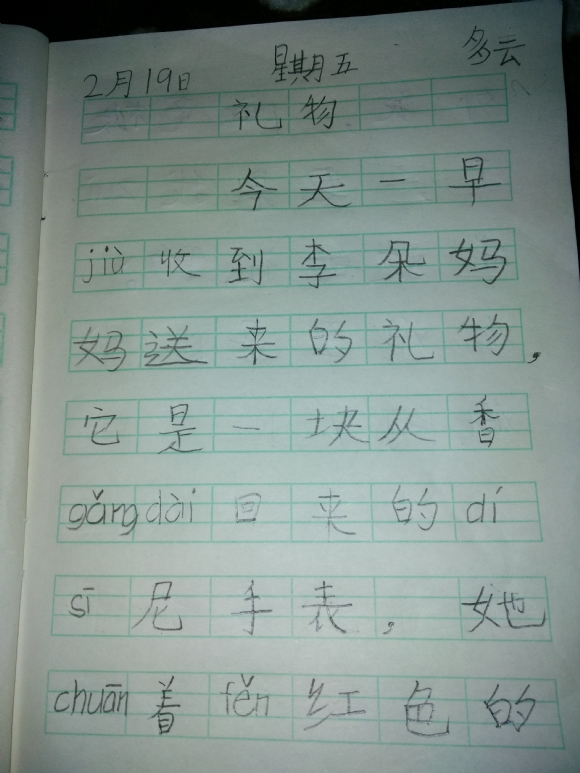 2月19日 星期五 多云
礼物
今天一早
jiù收到李朵妈
妈送来的礼物,
它是一块从香
gǎng dài回来的dí
sī尼手表,她
chuān着fěn红色的